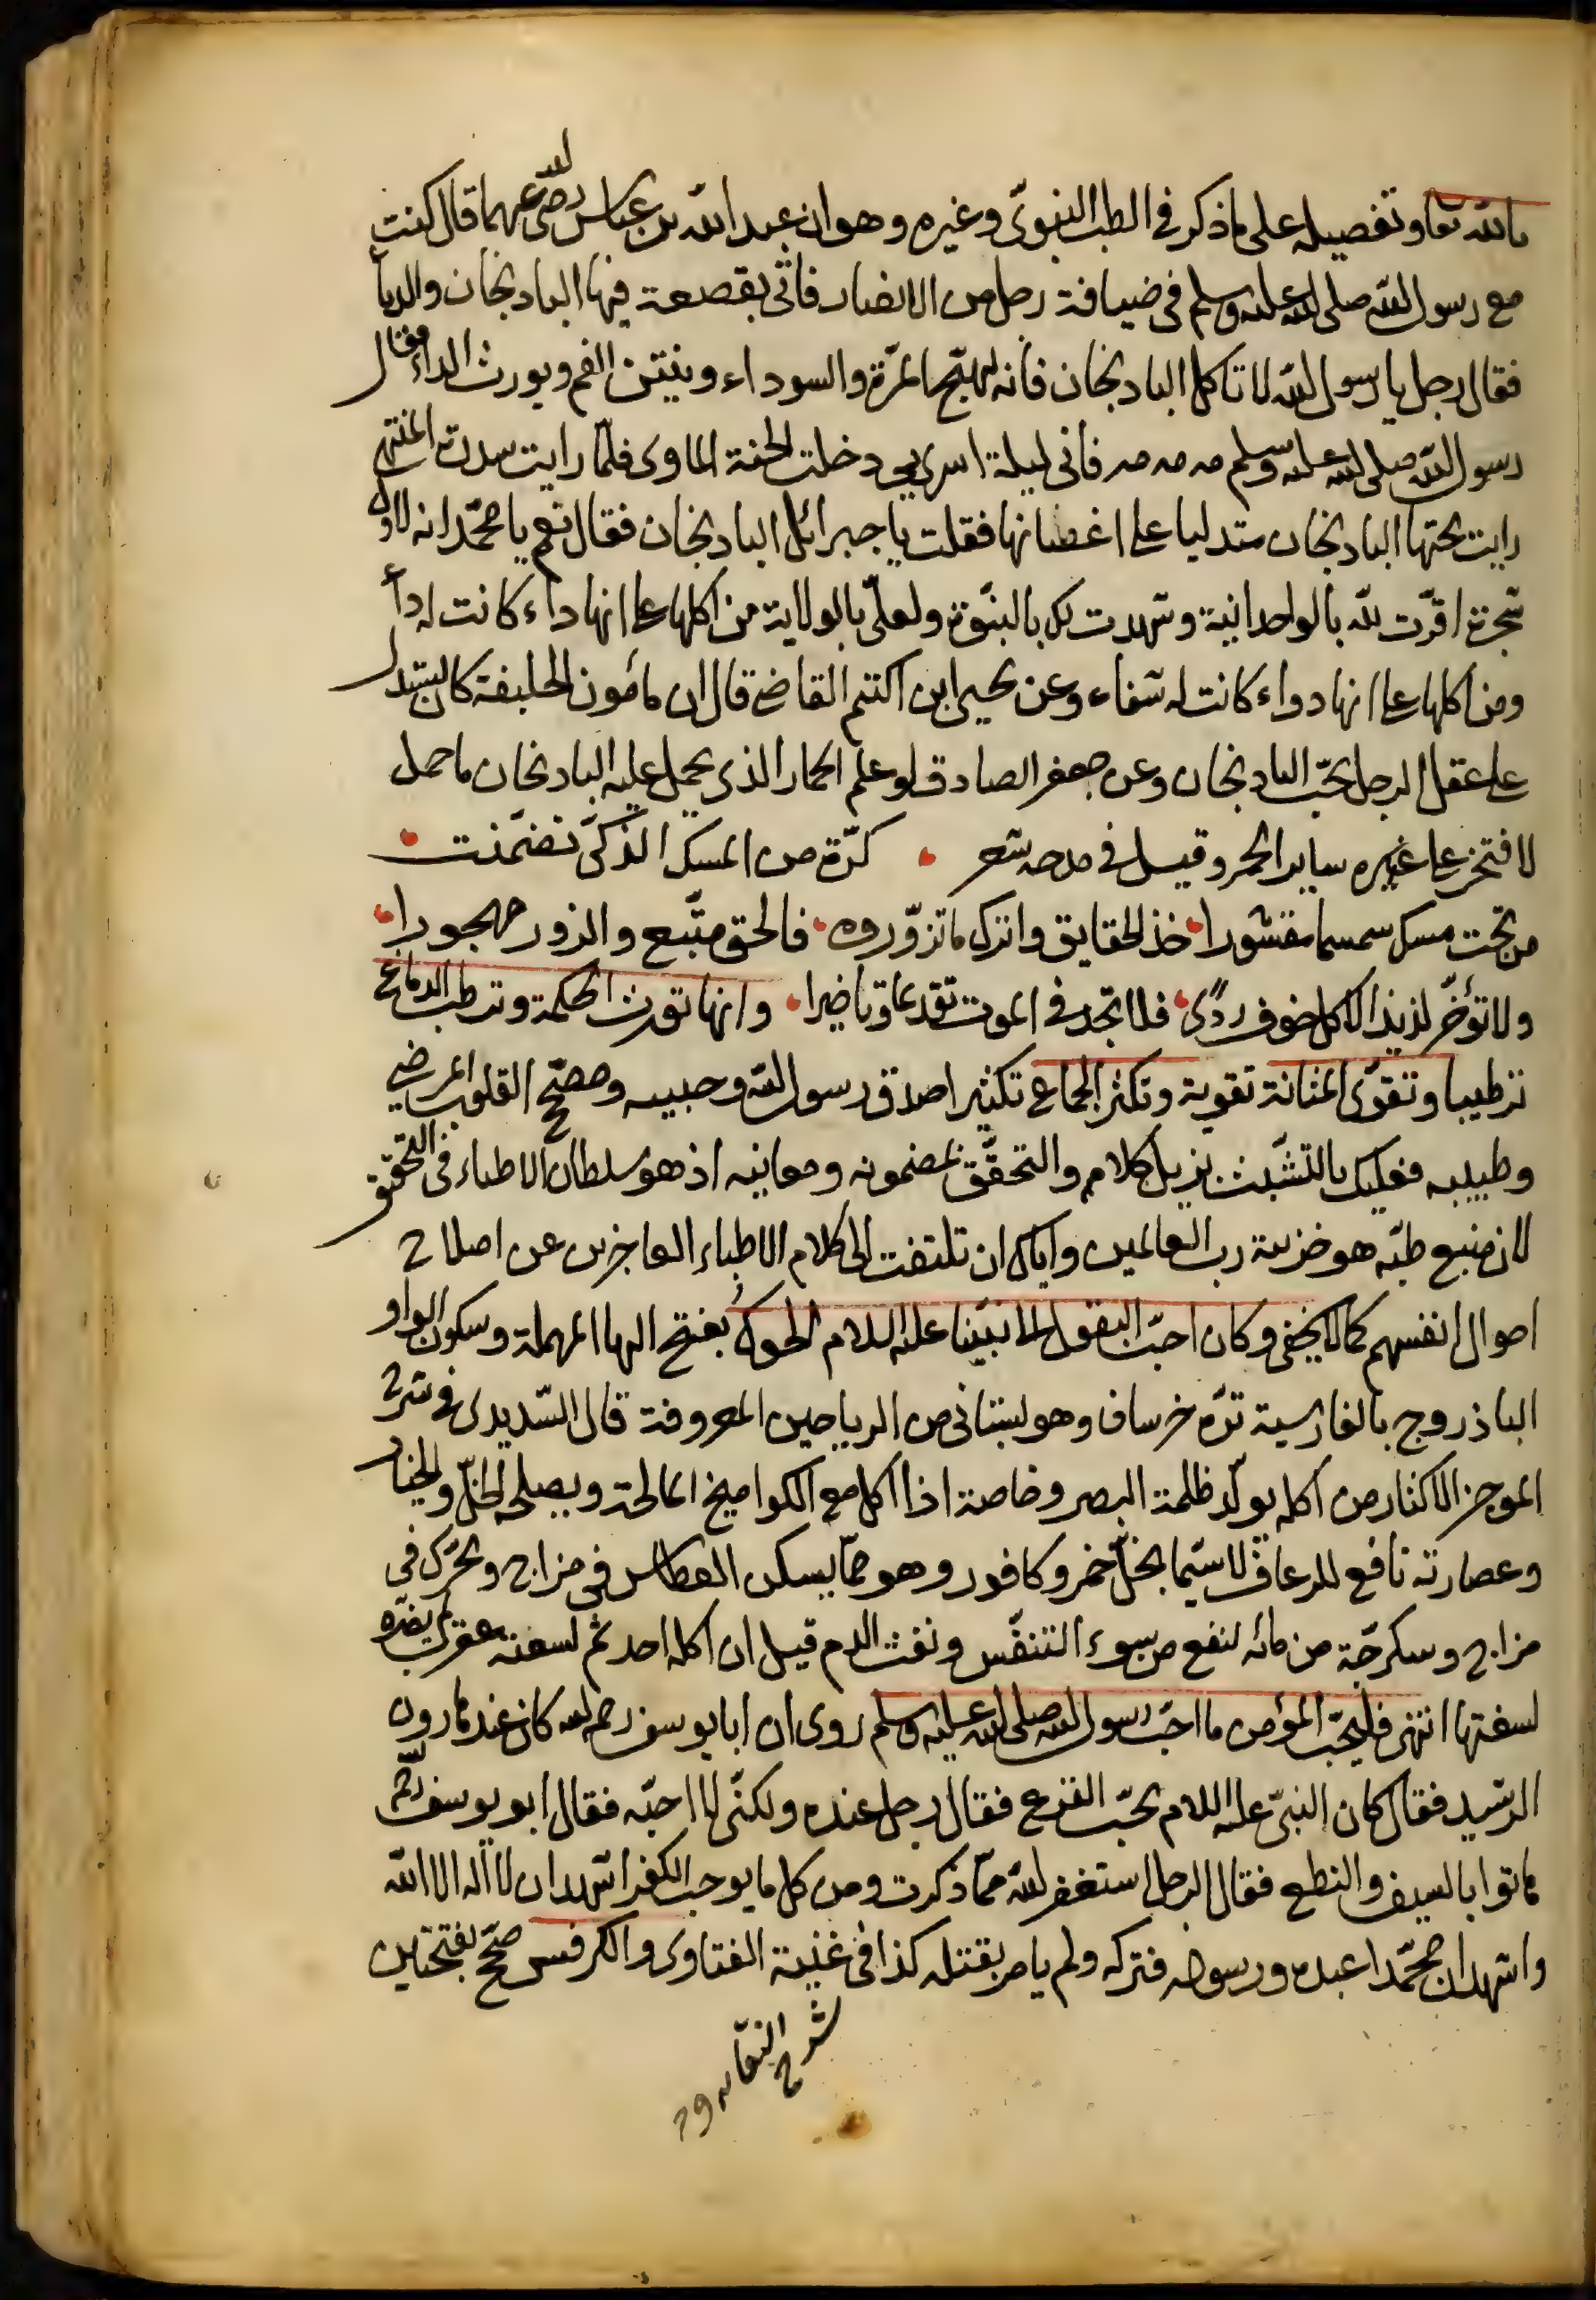 بالله تعا وتفصيله على ما ذكر في الطب النبوى وغيره وهو ان عبد الله بن عباس رضى الله عنهما قال كنت
مع رسول الله صلى الله عليه وسلم في ضيافة رجل من الانصار فاتى بقصعة فيها البادنجان والدبأ
فقال رجل يا رسول الله لا تاكل البادنجان فانه يهيّج المرّة والسوداء وينتن الفم ويورث الداء فقال
رسول الله صلى الله عليه وسلم مه مه مه فانى ليلة اسرى بى دخلت الجنة الماوى فلمّا رايت سدرت المنتهى
رايت تحتها البادنجان متدليا على اغصانها فقلت يا جبرائل البادنجان فقال نعم يا محمّد انه لاوّل
شجرة اقرّت لله بالواحدانية وشهدت لك بالنبوّة ولعلىّ بالولاية من اكلها على انها داء كانت له دأ
ومن اكلها على انها دواء كانت له شفاء وعن يحيى ابن اكثم القاضى قال ان مأمون الخليفة كان يستدل
على عقل الرجل بحبّ البادنجان وعن جعفر الصادق لو علم الحمار الذى يحمل عليه البادنجان ما حمل
لافتخر على غيره ساير الحمر وقيل في مدحه شعر كرّة من المسك الذكىّ تضمّنت
من تحت مسك سمسما مقشورا خذ الحقايق واترك ما تزوّروه فالحق متّبع والزور مهجورا
ولا تؤخّر لذيذ الاكل خوف ردًى فلا تجد في الموت تقديما وتاخيرا وانها تورث الحكمة وترطب الدماغ
ترطيبا وتقوّى المثانة تقوية وتكثر الجماع تكثيرا صدق رسول الله وحبيبه ومصحّح القلوب المرضى
وطبيبه فعليك بالتشبّث بزيل كلامه والتحقّق بمضمونه ومعانيه اذ هو سلطان الاطباء فى التحقيق
لان منبع طبّه هو خزينة رب العالمين واياك ان تلتفت الى كلام الاطباء العاجزين عن اصلاح
احوال انفسهم كما لا يخفى وكان احبّ البقول الى نبيّنا عليه السلام الحوك بفتح الها المهملة وسكون الواو
الباذروج بالفارسية ترّه خرسان وهو بستانى من الرياحين المعروفة قال السّديدى فى شرح
الموجز الاكثار من اكله يولّد ظلمة البصر وخاصة اذا اكل مع الكواميخ المالحة ويصلحه الخلّ والخيار
وعصارته نافع للرعاف لا سيّما بخلّ خمر وكافور وهو ممّا يسكن العطاس فى مزاج ويحرّك فى
مزاج وسكرجة من مائه لنفع من سوء التنفّس ونفث الدم قيل ان اكله احد ثم لسعته عقرب لم يضرّه
لسعتها انتهى فليحبّ المؤمن ما احبّ رسول الله صلى الله عليه وسلم روى ان ابا يوسف رحمه الله كان عند هارون
الرشيد فقال كان النبىّ عليه السلام يحبّ القرع فقال رجل عنده ولكنّى لا احبّه فقال ابو يوسف
هاتوا بالسيف والنطع فقال الرجل استغفر الله ممّا ذكرت ومن كل ما يوجب الكفر اشهد ان لا اله الا الله
واشهد ان محمّدا عبده ورسوله فتركه ولم يامر بقتله كذا فى غنية الفتاوى والكرفس صحّ بفتحتين
شرح